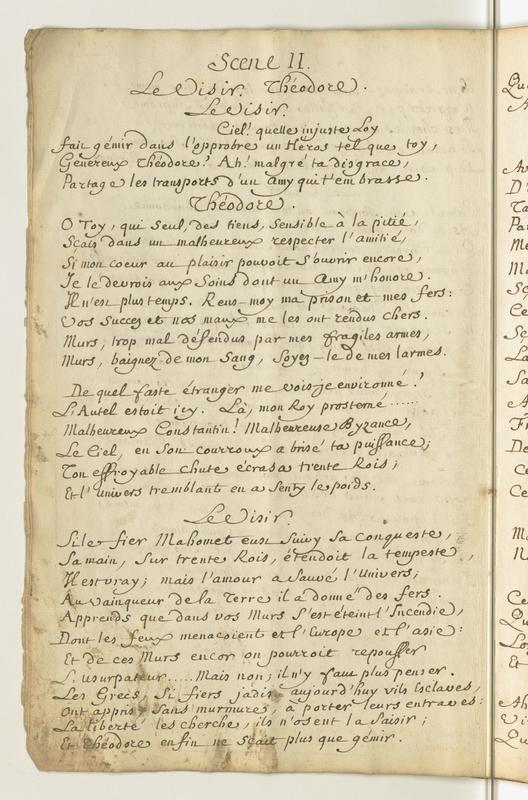 Scene II.
Le Visir. Théodore.
Le Visir.
Ciel! quelle injuste Loy
fait gémir dans l'opprobre un Héros tel que toy,
Généreux Théodore! Ah! malgré ta disgrace,
Partage les transports d'un Amy qui t'embrasse.
Théodore.
O Toy, qui seul, des tiens, sensible à la pitié,
Sçais dans un malheureux respecter l'amitié,
Si mon coeur au plaisir pouvoit s'ouvrir encore,
Je le devrois aux soins dont un Amy m'honore.
Il n'est plus temps. Rens-moy ma prison et mes fers:
Vos Succez et nos maux me les ont rendus chers.
Murs, trop mal défendus par mes fragiles armes,
Murs, baignez de mon Sang, Soyez-le de mes larmes.
De quel faste étranger me vois-je environné!
L'Autel estoit icy. Là, mon Roy prosterné......
Malheureux Constantin! Malheureuse Byzance,
Le Ciel, en Son courroux a brisé ta puissance;
Ton effroyable chute écrasa trente Rois;
Et l'Univers tremblant en a Senty le poids.
Le Visir.
Si le fier Mahomet eust Suivy Sa Conqueste,
Sa main, Sur trente Rois, étendoit la tempeste,
Il est vray; mais l'amour a Sauvé l'Univers;
Au vainqueur de la Terre il a donné des fers.
Apprends que dans vos Murs S'est éteint l'Incendie,
Dont les feux menacoient et l'Europe et l'asie:
Et de ces Murs encor on pourroit repousser
L'usurpateur..... Mais non; il n'y faut plus penser.
Les Grecs, Si fiers jadis, aujourd'huy vils Esclaves,
Ont appris, Sans murmure, à porter leurs entraves:
La liberté les cherche, ils n'osent la Saisir;
Et Théodore enfin ne Sçait plus que gémir.